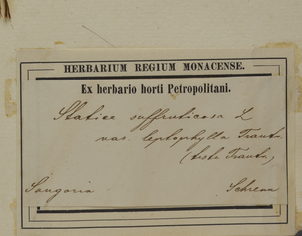 HERBARIUM REGIUM MONACENSE.
Ex herbario horti Petropolitani.
Statice suffruticosa L
var. leptophylla Trautv.
(teste Trautv.)
Songoria Schrenk